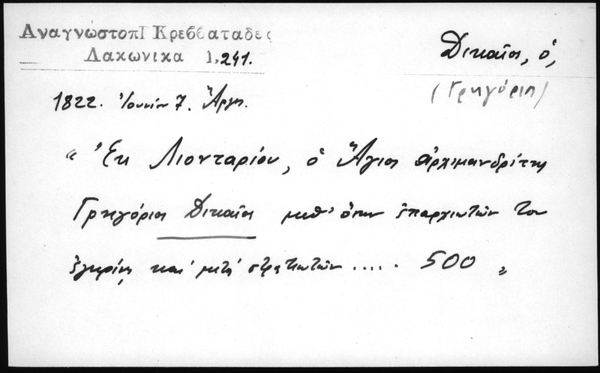 Αναγνωστοπ| Κρεββαταδες
Λακωνικα 1,241.
Δικαῖος, ὁ,
(Γρηγόριος)
1822. Ἰουνίου 7. Ἄργος.
"Ἐκ Λιονταρίου, ὁ Ἅγιος ἀρχιμανδρίτης
Γρηγόριος Δικαῖος μεθ' ὅσων ἐπαρχιωτῶν του
καὶ μετὰ στρατιωτῶν .... 500 "